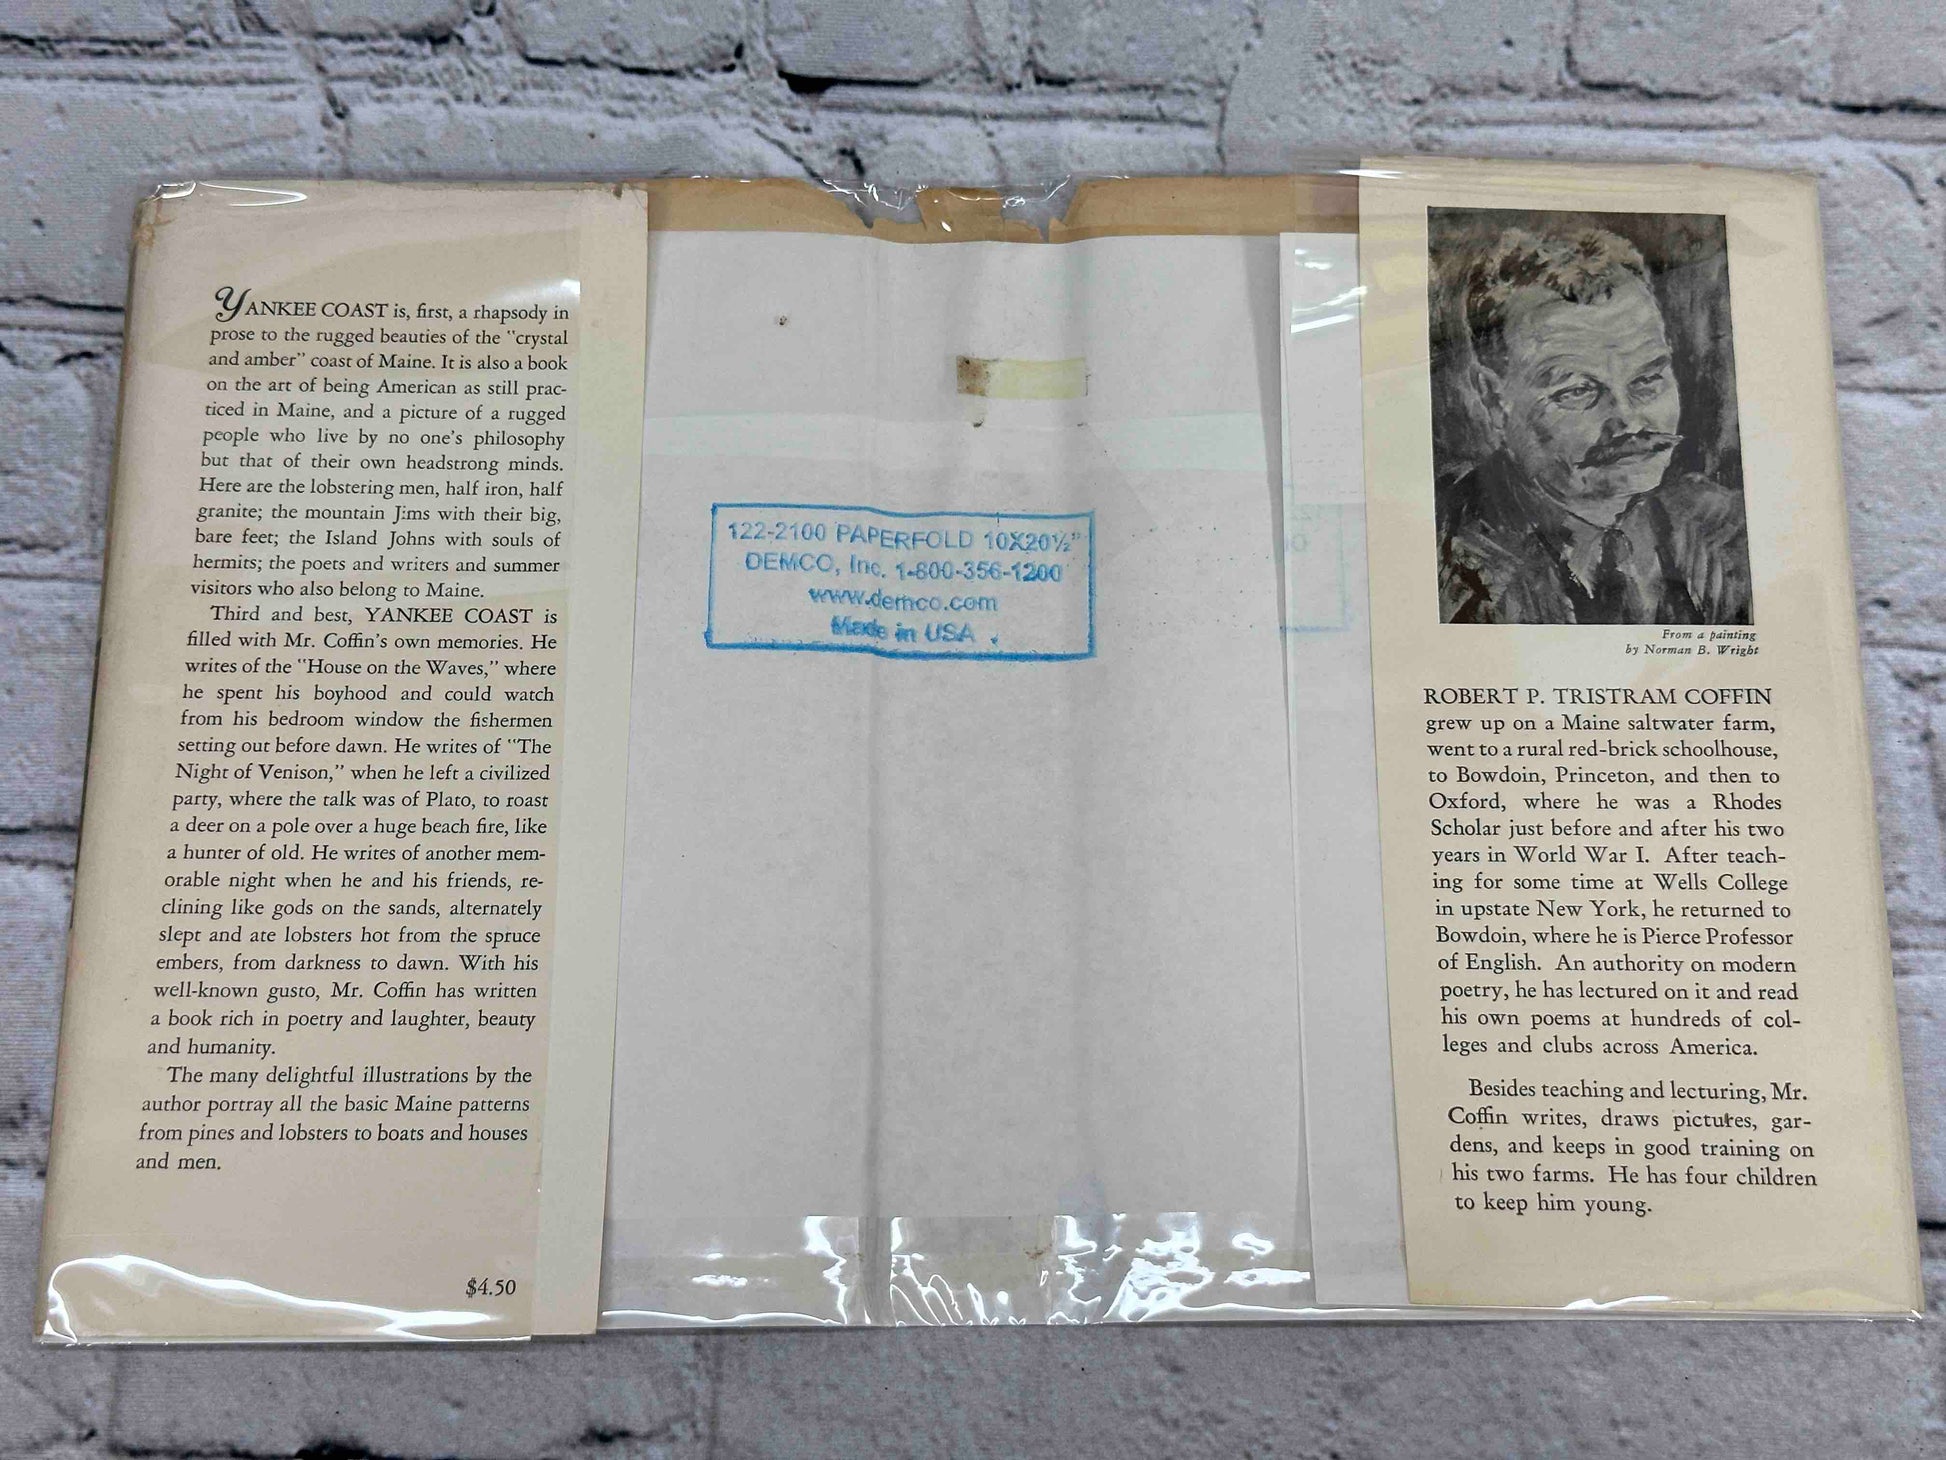 YANKEE COAST is, first, a rhapsody in
prose to the rugged beauties of the "crystal
and amber" coast of Maine. It is also a book
on the art of being American as still prac-
ticed in Maine, and a picture of a rugged
people who live by no one's philosophy
but that of their own headstrong minds.
Here are the lobstering men, half iron, half
granite; the mountain Jims with their big,
bare feet; the Island Johns with souls of
hermits; the poets and writers and summer
visitors who also belong to Maine.
Third and best, YANKEE COAST is
filled with Mr. Coffin's own memories. He
writes of the "House on the Waves," where
he spent his boyhood and could watch
from his bedroom window the fishermen
setting out before dawn. He writes of "The
Night of Venison," when he left a civilized
party, where the talk was of Plato, to roast
a deer on a pole over a huge beach fire, like
a hunter of old. He writes of another mem-
orable night when he and his friends, re-
clining like gods on the sands, alternately
slept and ate lobsters hot from the spruce
embers, from darkness to dawn. With his
well-known gusto, Mr. Coffin has written
a book rich in poetry and laughter, beauty
and humanity.
The many delightful illustrations by the
author portray all the basic Maine patterns
from pines and lobsters to boats and houses
and men.
$4.50
122-2100 PAPERFOLD 10X20½"
DEMCO, Inc. 1-800-356-1200
www.demco.com
Made in USA .
From a painting
by Norman B. Wright
ROBERT P. TRISTRAM COFFIN
grew up on a Maine saltwater farm,
went to a rural red-brick schoolhouse,
to Bowdoin, Princeton, and then to
Oxford, where he was a Rhodes
Scholar just before and after his two
years in World War I. After teach-
ing for some time at Wells College
in upstate New York, he returned to
Bowdoin, where he is Pierce Professor
of English. An authority on modern
poetry, he has lectured on it and read
his own poems at hundreds of col-
leges and clubs across America.
Besides teaching and lecturing, Mr.
Coffin writes, draws pictures, gar-
dens, and keeps in good training on
his two farms. He has four children
to keep him young.